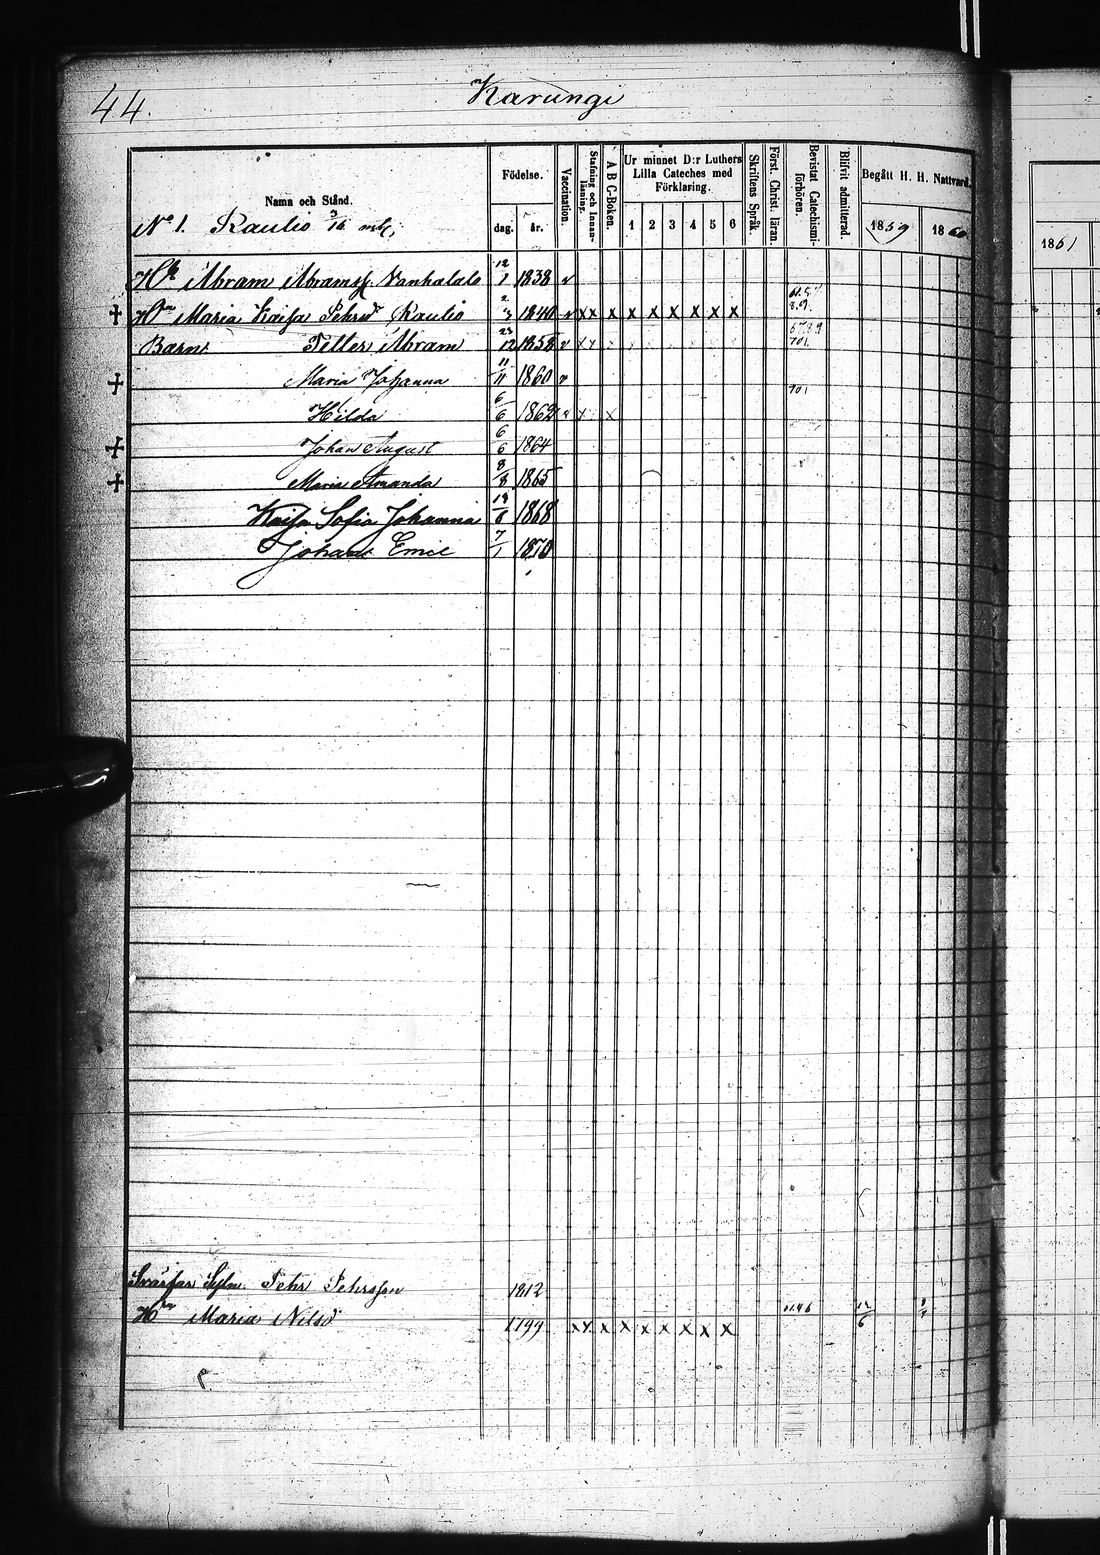 44.
Karungi
Namn och Stånd.
Födelse.
dag. år.
Vaccination.
Stafning och Innanläsning.
A B C-Boken.
Ur minnet D:r Luthers Lilla Cateches med Förklaring.
1 2 3 4 5 6
Skriftens Språk
Först. Christ. läran.
Bevistat Catechismiförhören.
Blifvit admitterad.
Begått H. H. Nattvard.
1859 1860
1861
No 1. Raulio 3/16 mtl;
Abram Abramss. Vanhatalo 12/1 1838 v
+ Hn Maria Kaisa Pehrsd Raulio 2/3 1840 v x x x x x x x x x
Barn: Petter Abram 23/12 1858 v
+ Maria Johanna 11/11 1860 v
Hilda 6/6 1862 v x x
+ Johan August 6/6 1864
+ Maria Amanda 8/8 1865
Kaisa Sofia Johanna 1868
Johan Emil 7/1 1870
Svärfar Sytn. Pehr Pehrsson 1812
Hn Maria Nilsd 1799 x x x x x x x x x